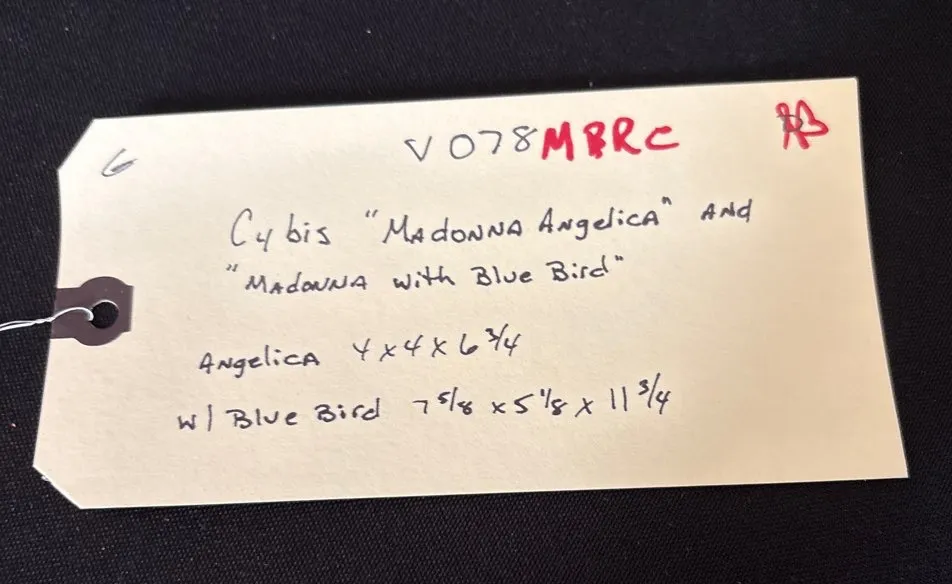 6
V078MBRC
Cybis "Madonna Angelica" and
"Madonna with Blue Bird"
Angelica 4x4x6 3/4
w/ Blue Bird 7 5/8 x 5 1/8 x 11 3/4